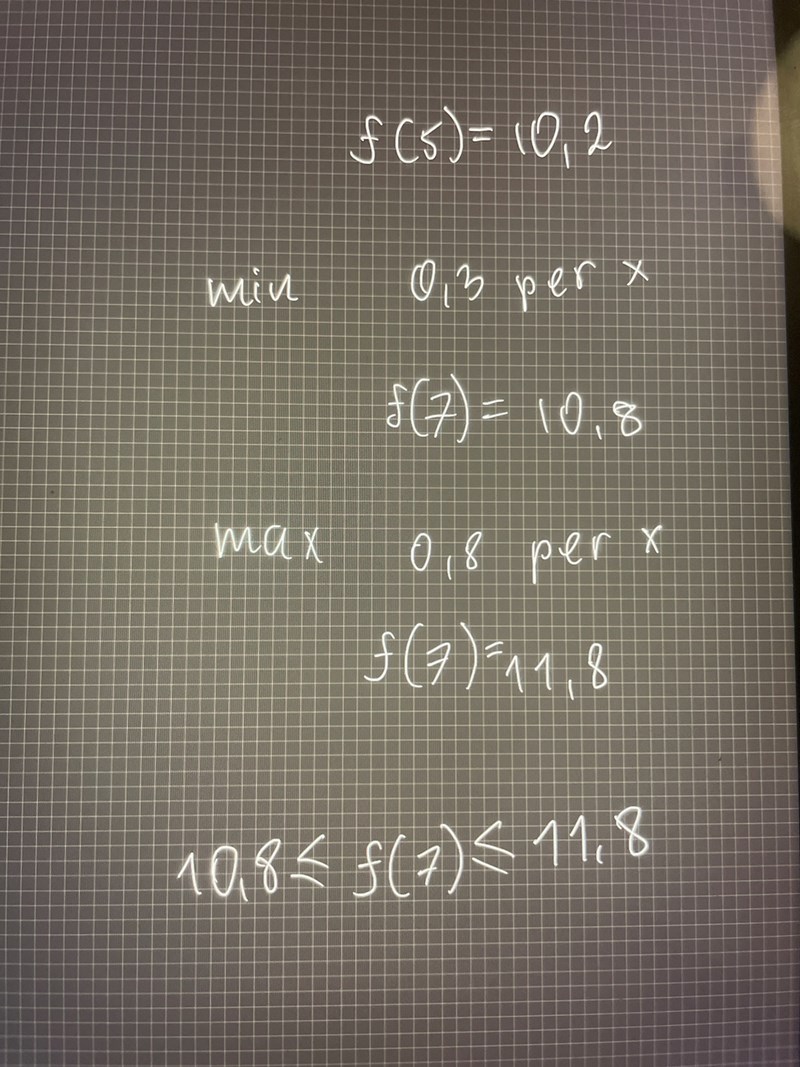 f(5)=10,2
min 0,3 per x
f(7)=10,8
max 0,8 per x
f(7)=11,8
10,8≤ f(7)≤ 11,8